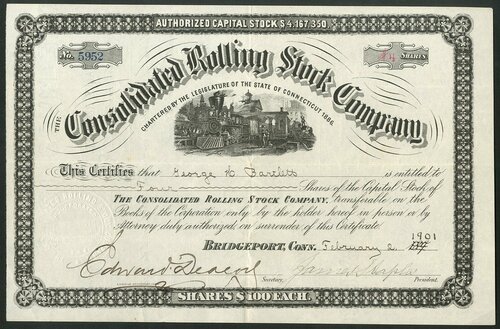 AUTHORIZED CAPITAL STOCK $4,167,350.
No. 5952
SHARES
THE
Consolidated Rolling Stock Company,
CHARTERED BY THE LEGISLATURE OF THE STATE OF CONNECTICUT 1886.
This Certifies that George H Bartlett is entitled to
Four Shares of the Capital Stock of
THE CONSOLIDATED ROLLING STOCK COMPANY, transferable on the
Books of the Corporation only by the holder hereof in person or by
Attorney duly authorized, on surrender of this Certificate.
BRIDGEPORT, CONN. February 2 1901
Edward
Secretary. James Staples President.
SHARES $100 EACH.